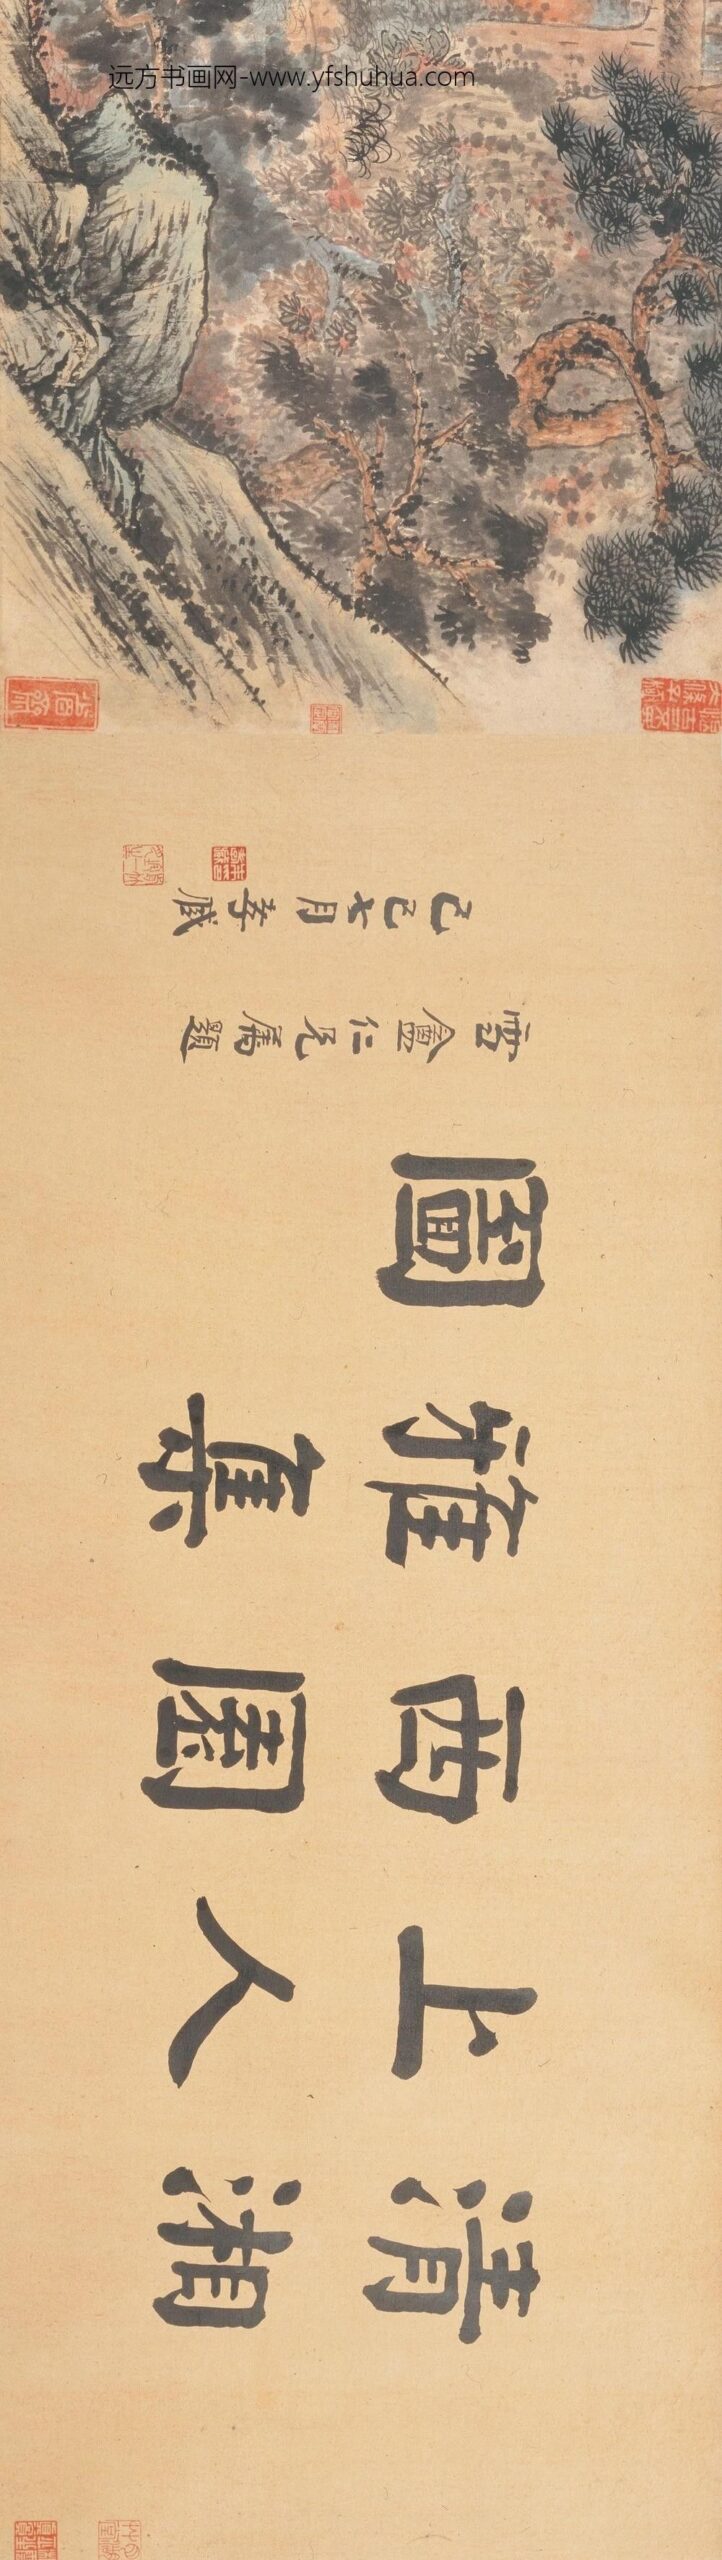 远方书画网-www.yfshuhua.com
清湘
上人
西園
雅集
圖
雪盦仁兄屬題
己巳七月孝臧